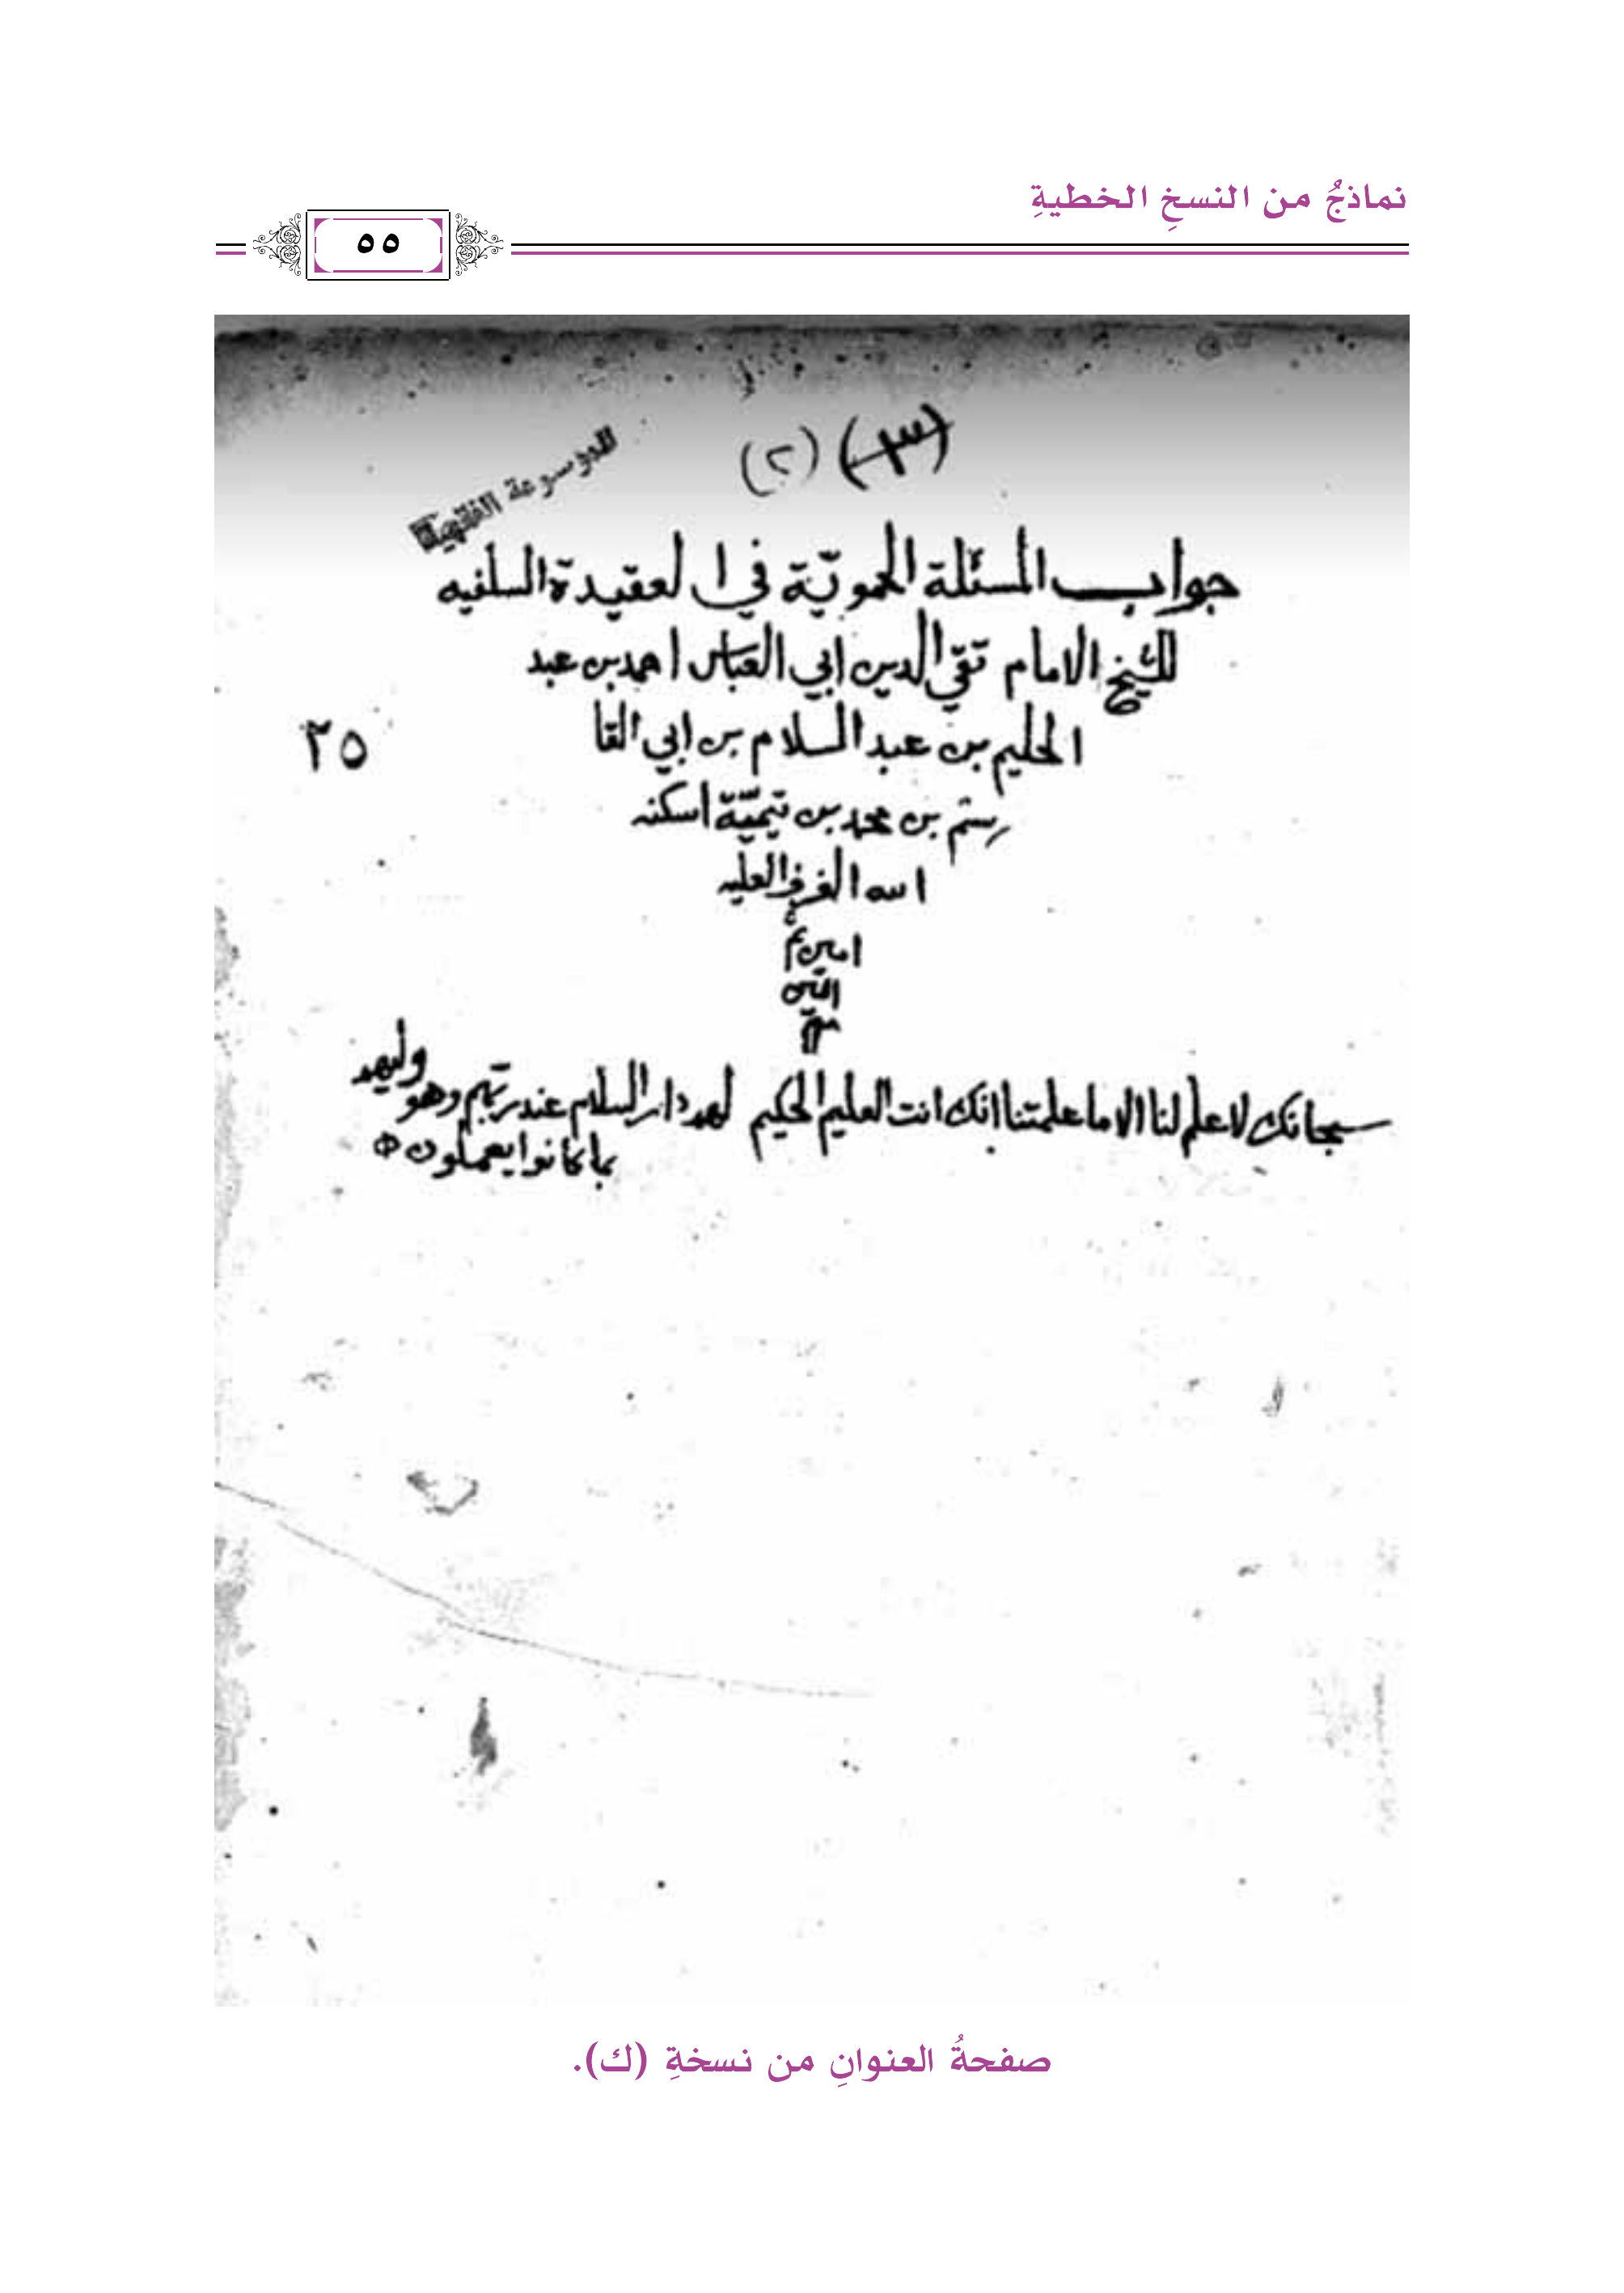 نماذجُ من النسخِ الخطيةِ
٥٥
(٣) (٢)
الموسوعة الفقهية
جواب المسئلة الحمويّة في العقيدة السلفيه
للشيخ الامام تقي الدين ابي العباس احمد بن عبد
الحليم بن عبد السلام بن ابي القا
سم بن محمد بن تيميّة اسكنه
الله الغرف العليه
امين
٢٥
سبحانك لا علم لنا الا ما علمتنا انك انت العليم الحكيم لهم دار السلام عند ربهم وهو وليهم
بما كانوا يعملون
صفحةُ العنوانِ من نسخةِ (ك).